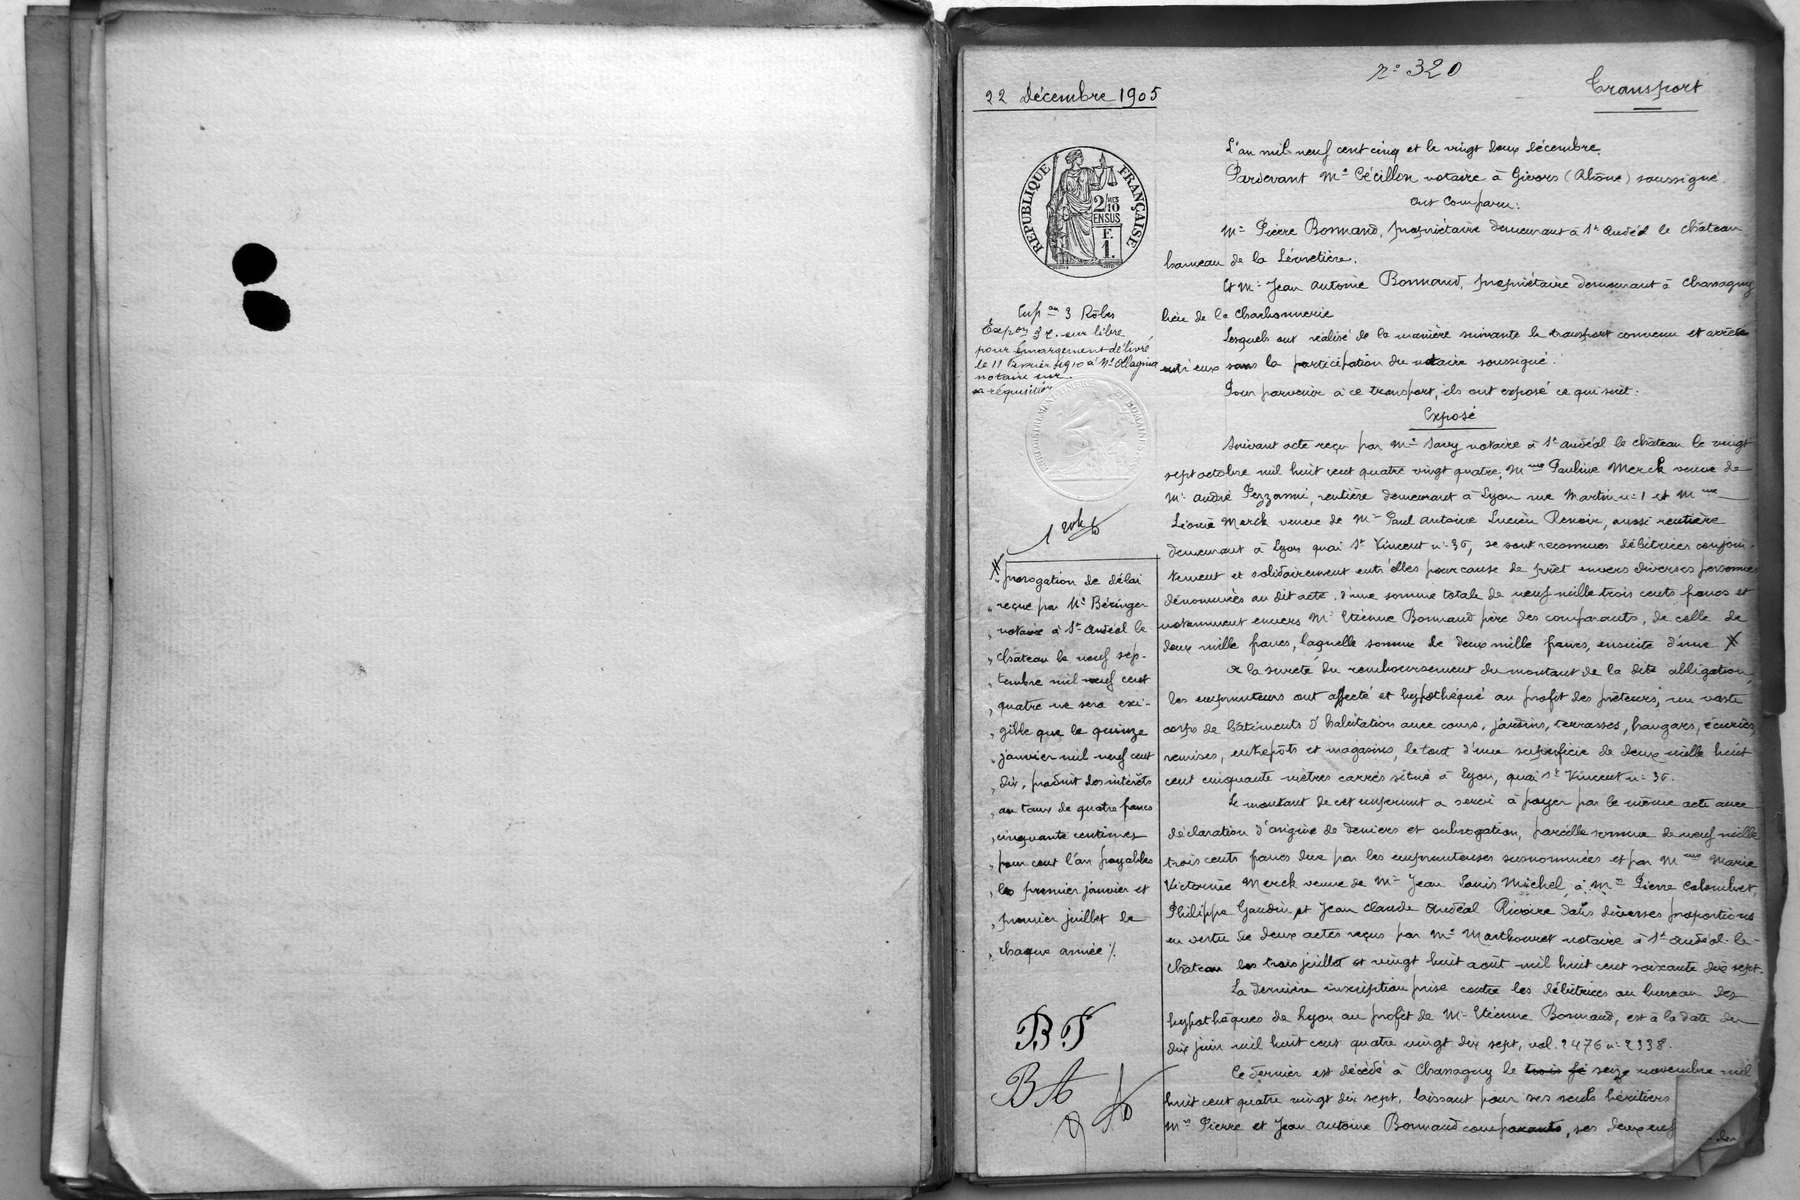 n° 320
22 Décembre 1905
Transport
RÉPUBLIQUE FRANÇAISE
2/10 MES
EN SUS
F.
1.
L'an mil neuf cent cinq et le vingt deux décembre.
Pardevant Me Cécillon notaire à Givors (Rhône) soussigné
Ont Comparu:
Mr Pierre Bonnand, propriétaire demeurant à St Andéol le château
hameau de la
Et Mr Jean Antoine Bonnand, propriétaire demeurant à Chassagny
lieu de la Charbonnerie
Lesquels ont réalisé de la manière suivante le transport convenu et arrêté
entr'eux sans la participation du notaire soussigné.
Pour parvenir à ce transport, ils ont exposé ce qui suit:
Exposé
Suivant acte reçu par Me Savy notaire à St Andéol le château le vingt
sept octobre mil huit cent quatre vingt quatre, Mme Pauline Merck veuve de
Mr André Pezzanni, rentière demeurant à Lyon rue Martin n° 1 et Mme
Léonie Merck veuve de Mr Paul Antoine Lucien Renoir, aussi rentière
demeurant à Lyon quai St Vincent n° 36, se sont reconnues débitrices conjoin-
tement et solidairement entr'elles pour cause de prêt envers diverses personnes
dénommées au dit acte, d'une somme totale de neuf mille trois cents francs et
notamment envers Mr Etienne Bonnand père des comparants, de celle de
deux mille francs, laquelle somme de deux mille francs, ensuite d'une X
A la sureté du remboursement du montant de la dite obligation,
les emprunteurs ont affecté et hypothéqué au profit des prêteurs, un vaste
corps de bâtiments d'habitation avec cours, jardins, terrasses, hangars, écuries,
remises, entrepôts et magasins, le tout d'une superficie de deux mille huit
cent cinquante mètres carrés situé à Lyon, quai St Vincent n° 36.
Le montant de cet emprunt a servi à payer par le même acte avec
déclaration d'origine de deniers et subrogation, pareille somme de neuf mille
trois cents francs due par les emprunteuses susnommées et par Mme Marie
Victorine Merck veuve de Mr Jean Louis Michel, à Mrs Pierre Colombet,
Philippe Gaudin et Jean Claude Andéol Rivoire dans diverses proportions
en vertu de deux actes reçus par Me Marthouret notaire à St Andéol-le-
Château les trois juillet et vingt huit août mil huit cent soixante dix sept.
La dernière inscription prise contre les débitrices au bureau des
hypothèques de Lyon au profit de Mr Etienne Bonnand, est à la date du
dix juin mil huit cent quatre vingt dix sept, vol. 2476 n° 2338.
Ce dernier est décédé à Chassagny le seize novembre mil
huit cent quatre vingt dix sept, laissant pour ses seuls héritiers
Mrs Pierre et Jean Antoine Bonnand comparants, ses deux enf
Exp on 3 Rôles
Expon 3 r. sur libre
pour émargement délivré
le 11 février 1910 à Me
notaire sur
sa réquisition
1 rôle
X prorogation de délai
reçue par Me Béringer
notaire à St Andéol le
château le neuf sep-
tembre mil neuf cent
quatre ne sera exi-
gible que le quinze
janvier mil neuf cent
dix, produit des intérêts
au taux de quatre francs
cinquante centimes
pour cent l'an payables
les premier janvier et
premier juillet de
chaque année ./.
BP
BA